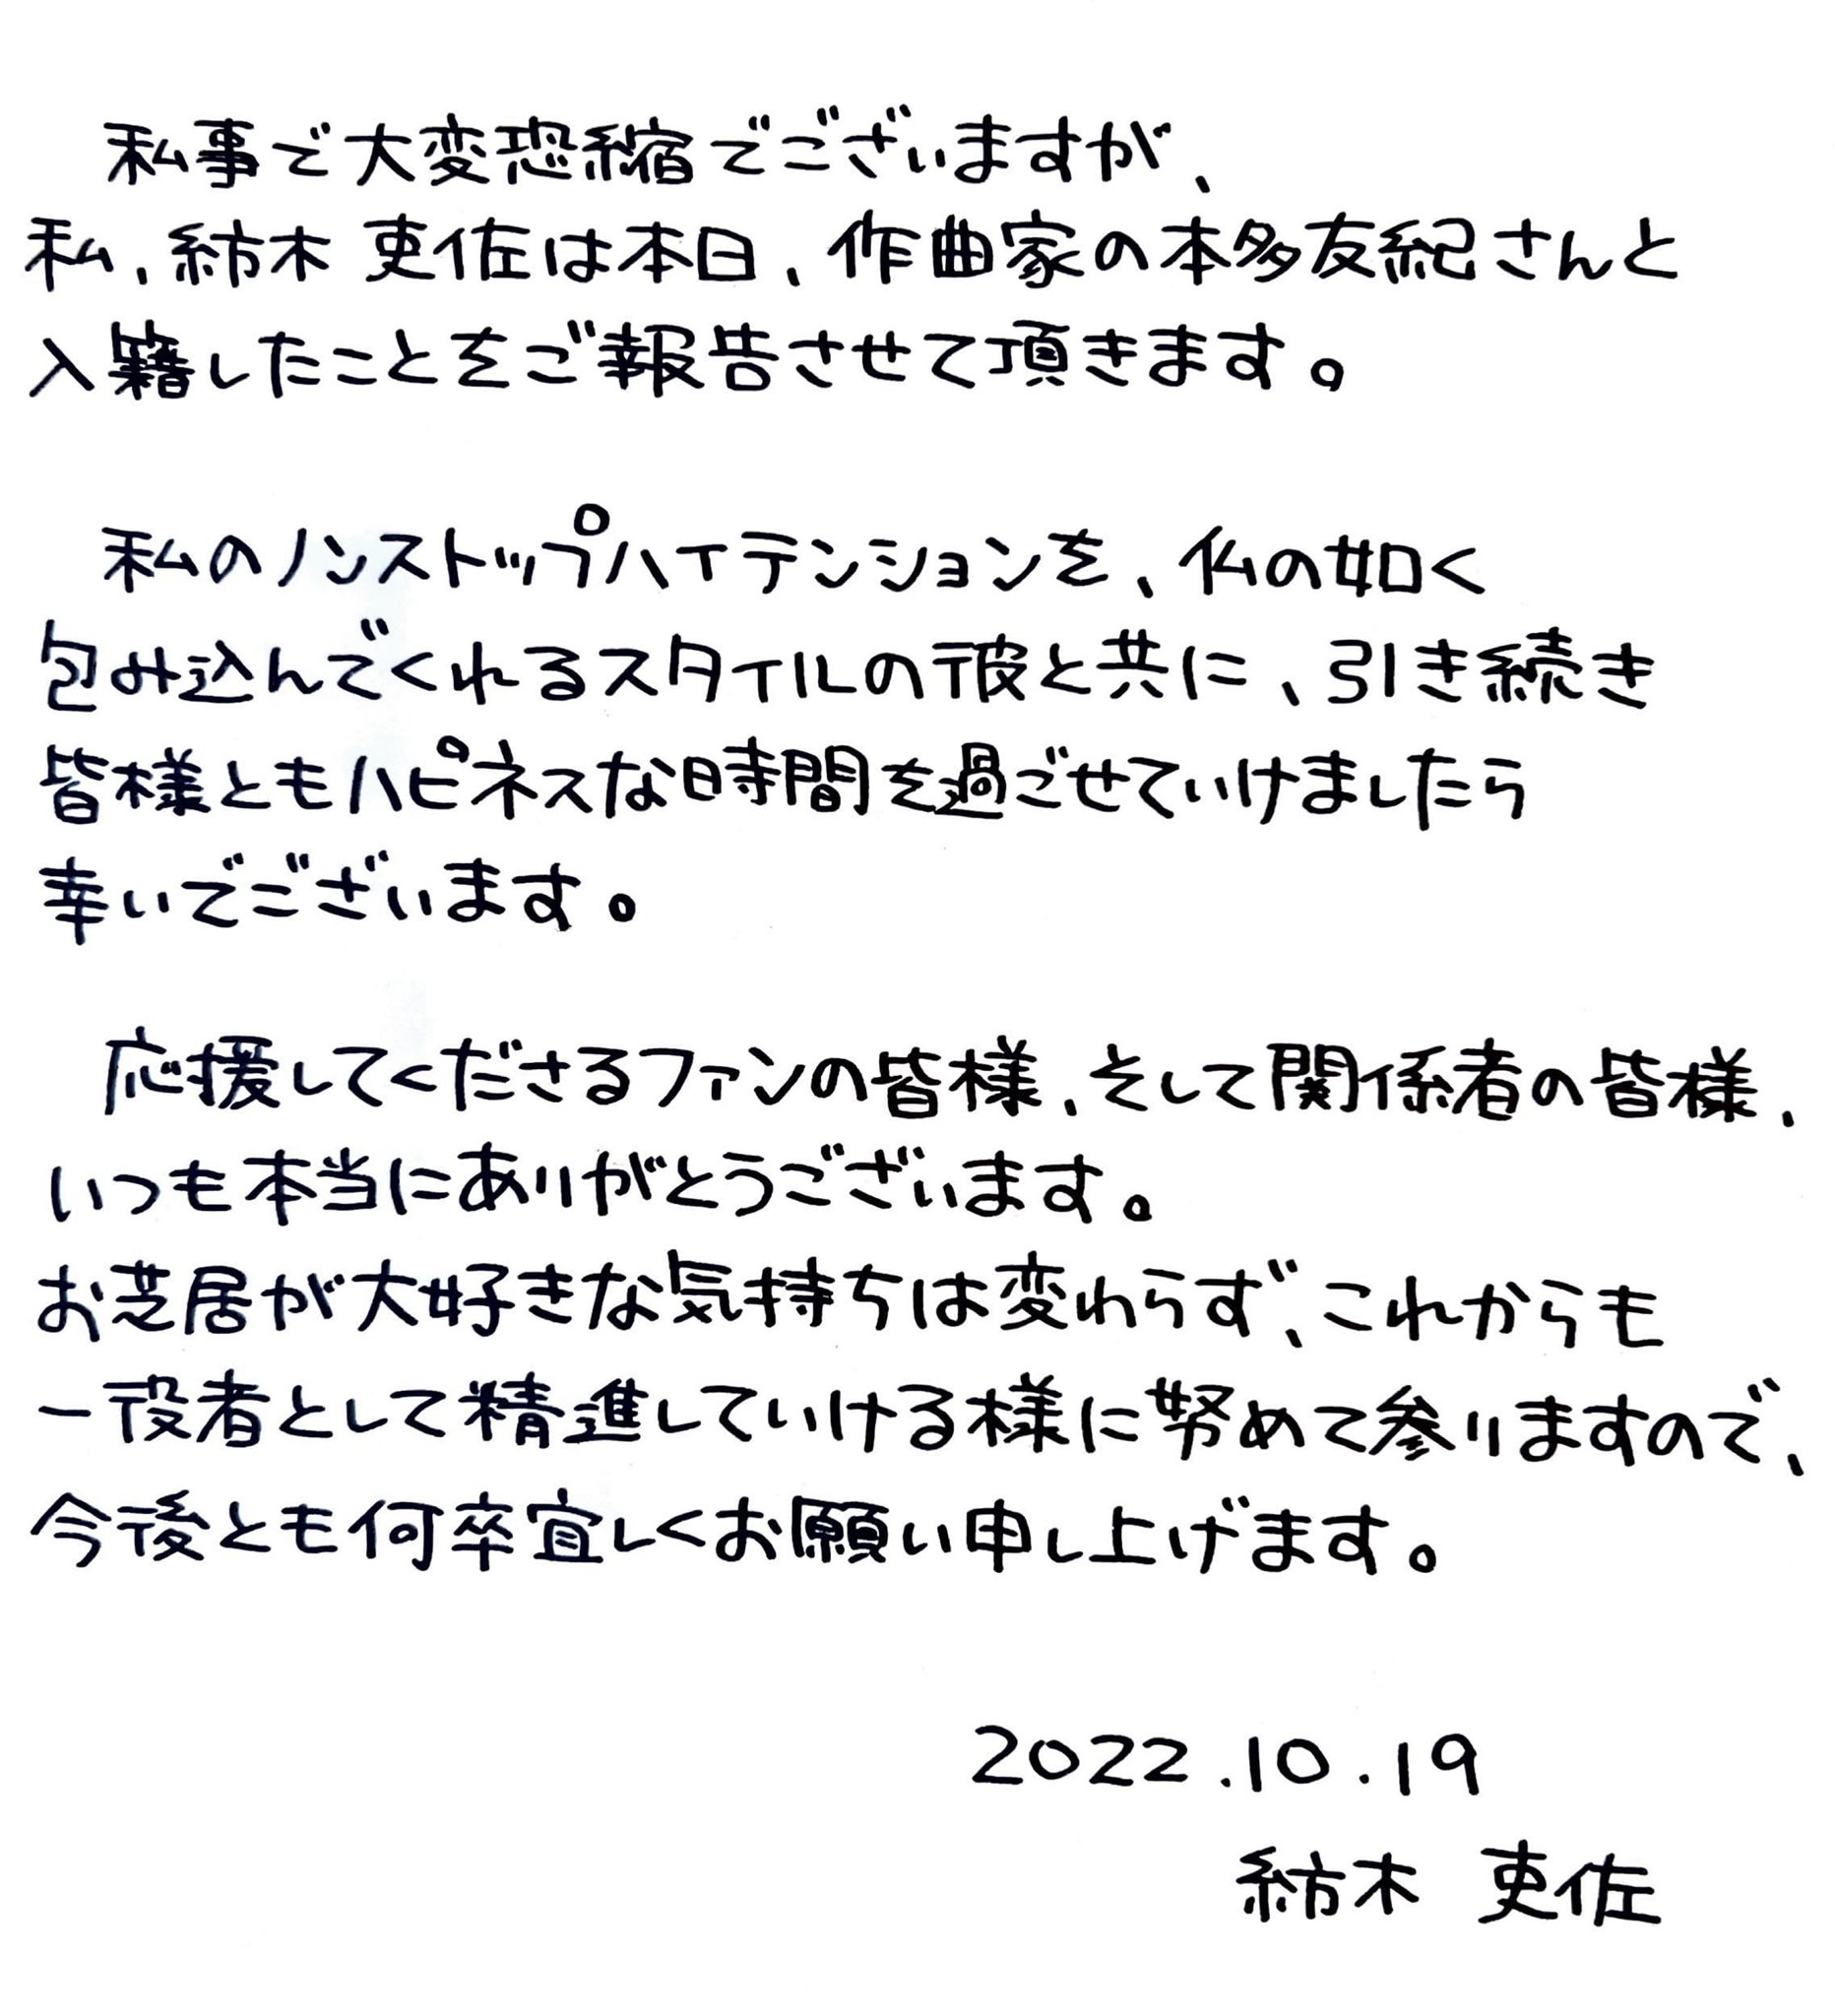 私事で大変恐縮でございますが、
私、紡木 吏佐は本日、作曲家の本多友紀さんと
入籍したことをご報告させて頂きます。
私のノンストップハイテンションを、仏の如く
包み込んでくれるスタイルの彼と共に、引き続き
皆様ともハピネスな時間を過ごせていけましたら
幸いでございます。
応援してくださるファンの皆様、そして関係者の皆様、
いつも本当にありがとうございます。
お芝居が大好きな気持ちは変わらず、これからも
一役者として精進していける様に努めて参りますので、
今後とも何卒宜しくお願い申し上げます。
2022.10.19
紡木 吏佐